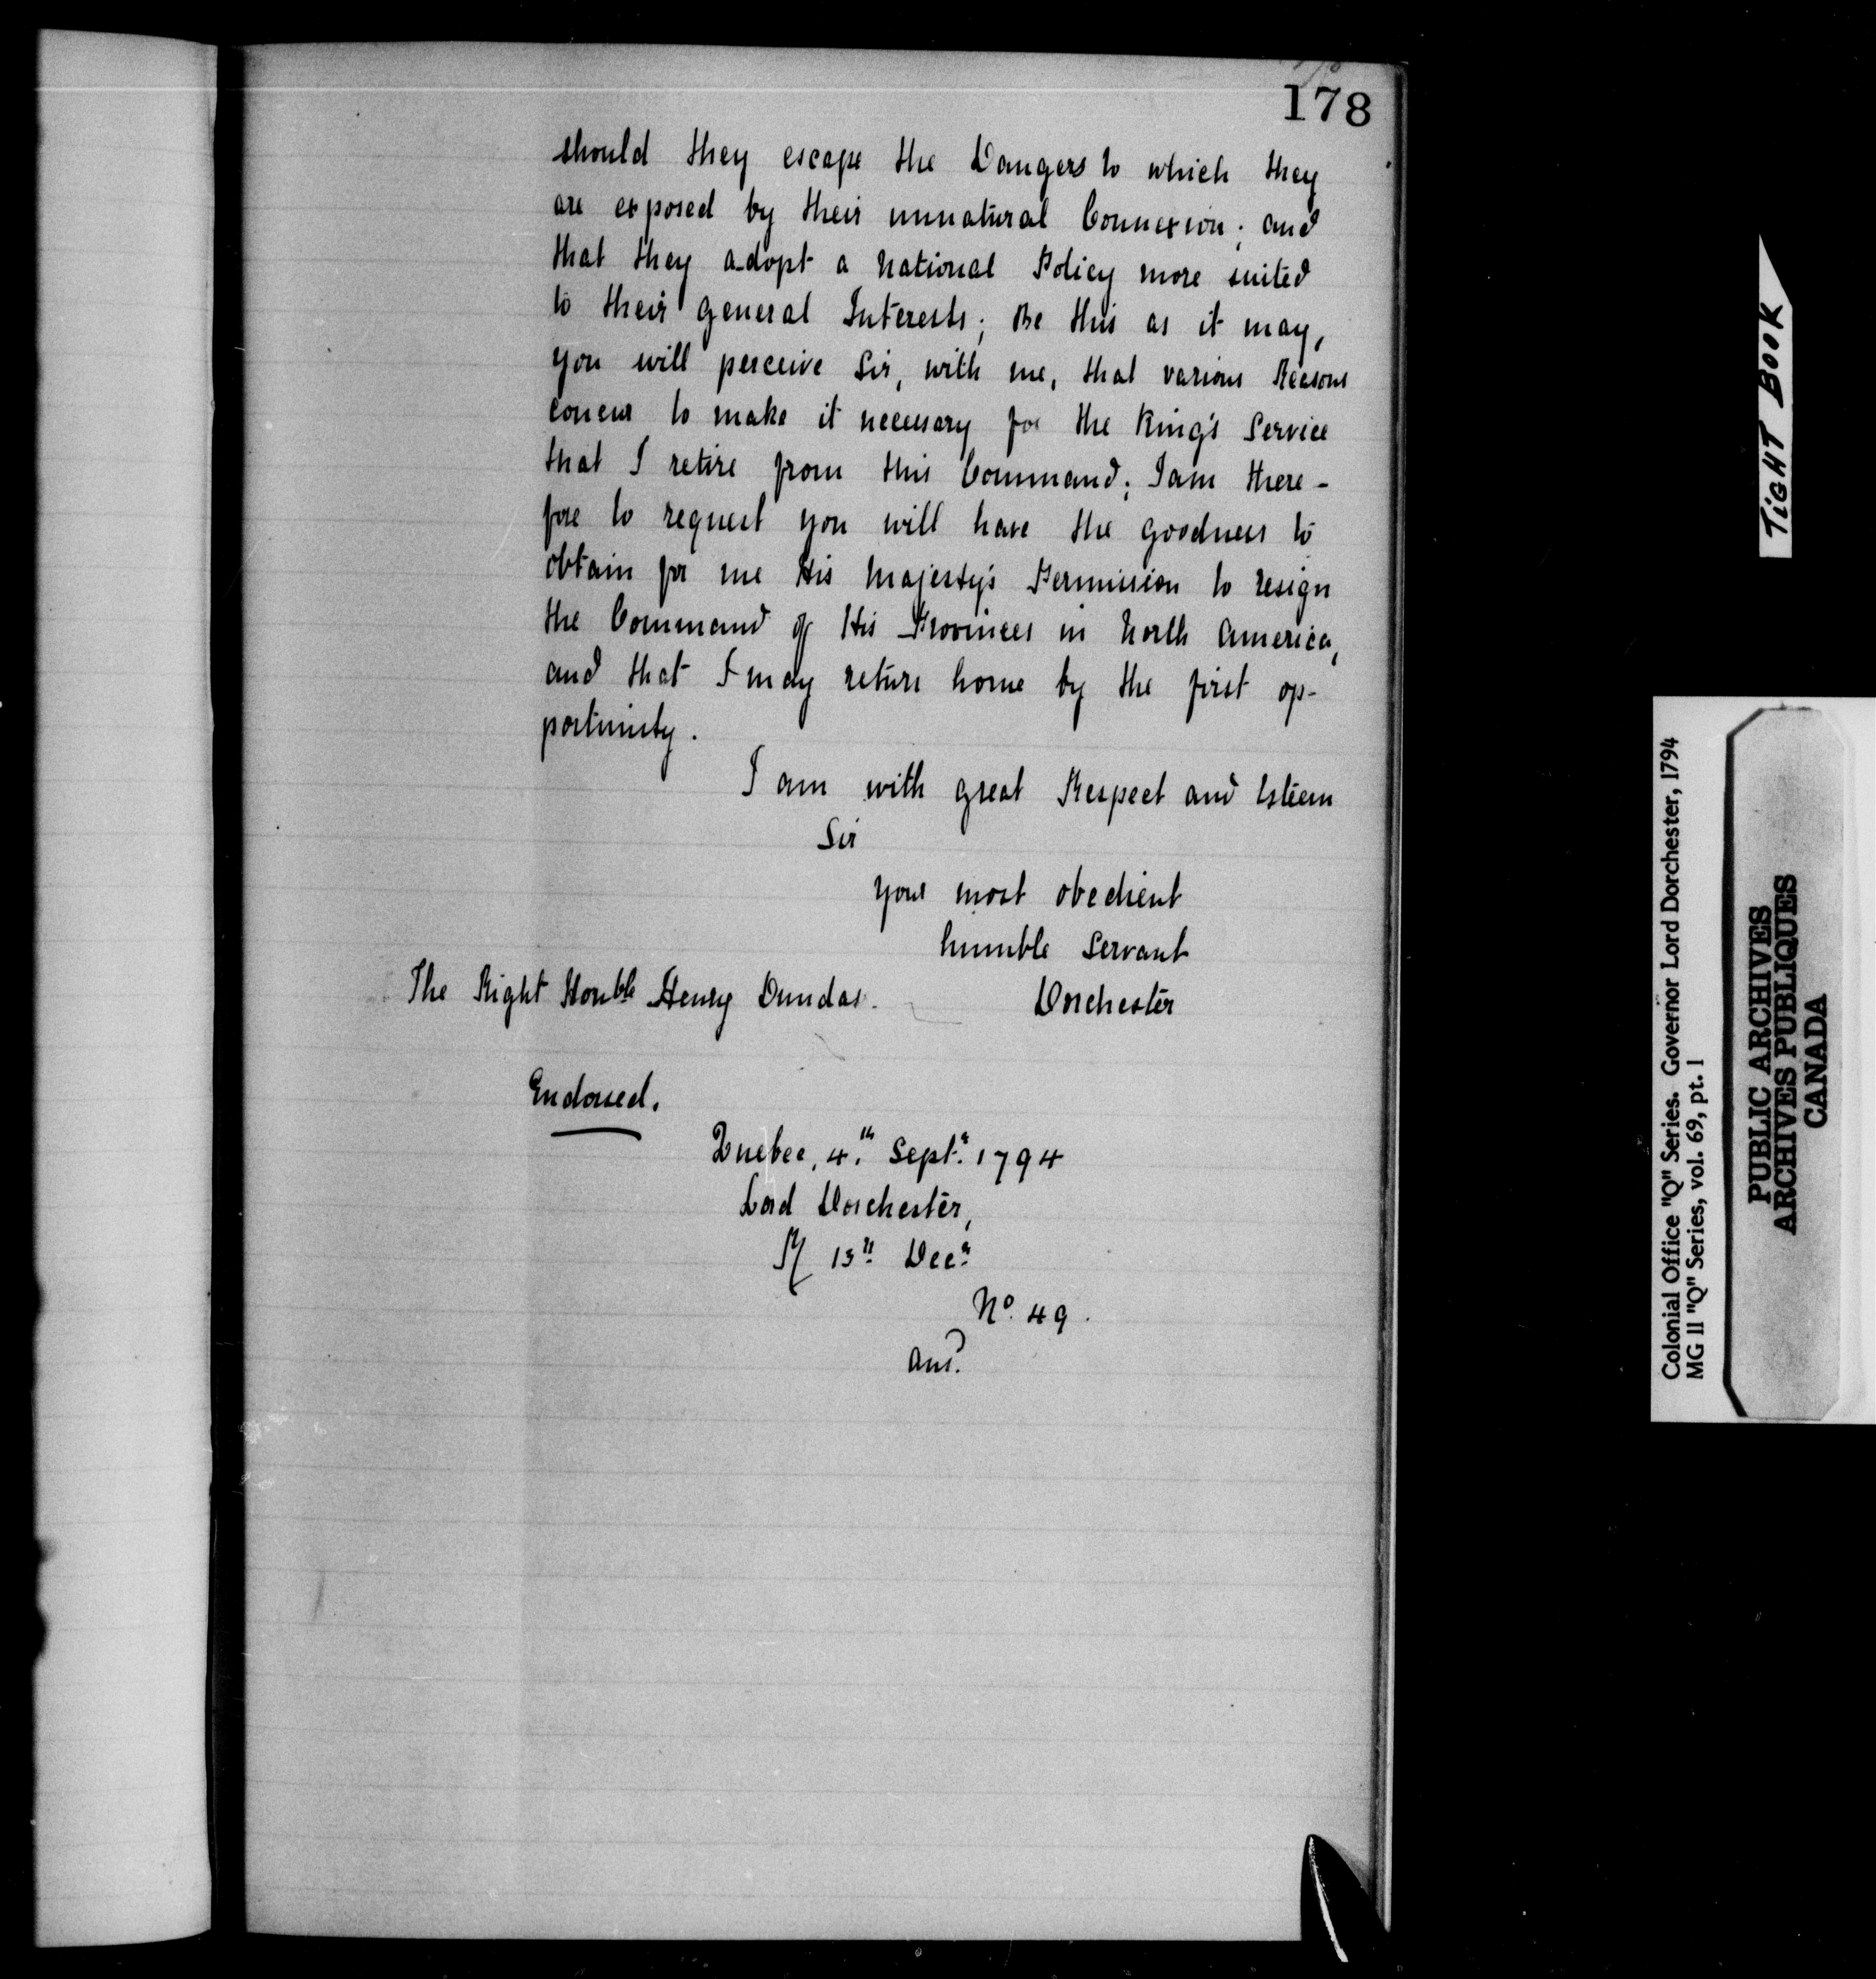 178
should they escape the Dangers to which they
are exposed by their unnatural Connexion; and
that they adopt a national Policy more suited
to their general Interests; Be this as it may,
you will perceive Sir, with me, that various Reasons
concur to make it necessary for the King's Service
that I retire from this Command; I am there-
fore to request you will have the goodness to
obtain for me His Majesty's Permission to resign
the Command of His Provinces in North America,
and that I may return home by the first op-
portunity.
I am with great Respect and Esteem
Sir
your most obedient
humble Servant
The Right Honble Henry Dundas.
Dorchester
Endorsed.
Quebec, 4.th Septr. 1794
Lord Dorchester,
R/ 13th Decr.
No. 49.
Ansd.
TiGHT BOOK
Colonial Office "Q" Series. Governor Lord Dorchester, 1794
MG 11 "Q" Series, vol. 69, pt. 1
PUBLIC ARCHIVES
ARCHIVES PUBLIQUES
CANADA